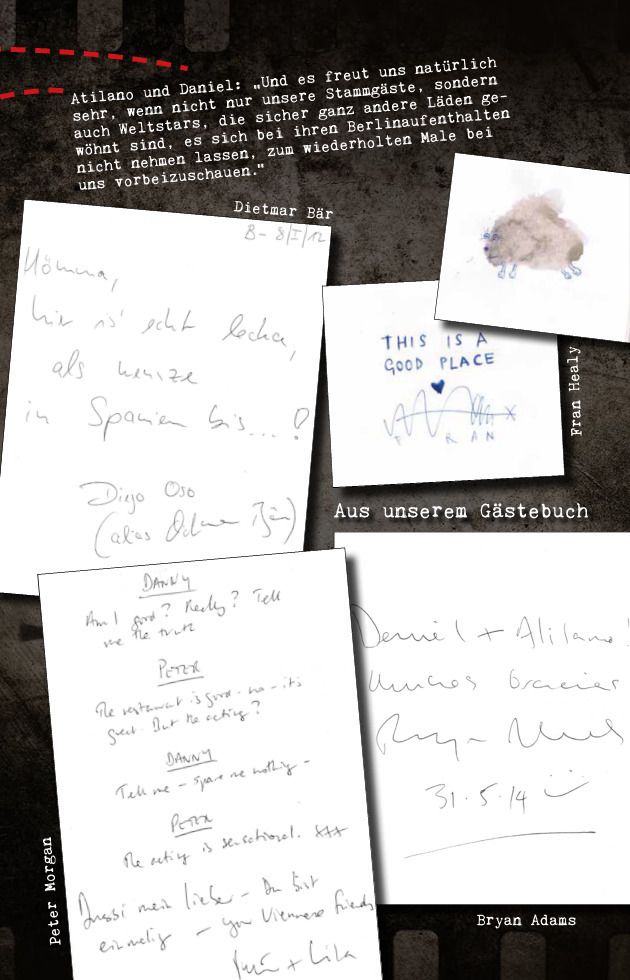 Atilano und Daniel: „Und es freut uns natürlich
sehr, wenn nicht nur unsere Stammgäste, sondern
auch Weltstars, die sicher ganz andere Läden ge-
wöhnt sind, es sich bei ihren Berlinaufenthalten
nicht nehmen lassen, zum wiederholten Male bei
uns vorbeizuschauen."
Dietmar Bär
B- 8/I/12
Hömma,
hier is' echt lecka,
als
in Spanien bis...!
Diego Oso
(alias Dietmar Bär)
THIS IS A
GOOD PLACE
FRAN
Fran Healy
Aus unserem Gästebuch
DANNY
Am I good? Really? Tell
me the truth
PETER
The restaurant is good - no - it's
great. But the acting?
DANNY
Tell me - spare me nothing -
PETER
The acting is sensational. xxx
Bussi mein lieber - Du bist
einmalig - your Viennese friends
+ Lila
Peter Morgan
Daniel + Atilano!
Muchas Gracias
31.5.14
Bryan Adams